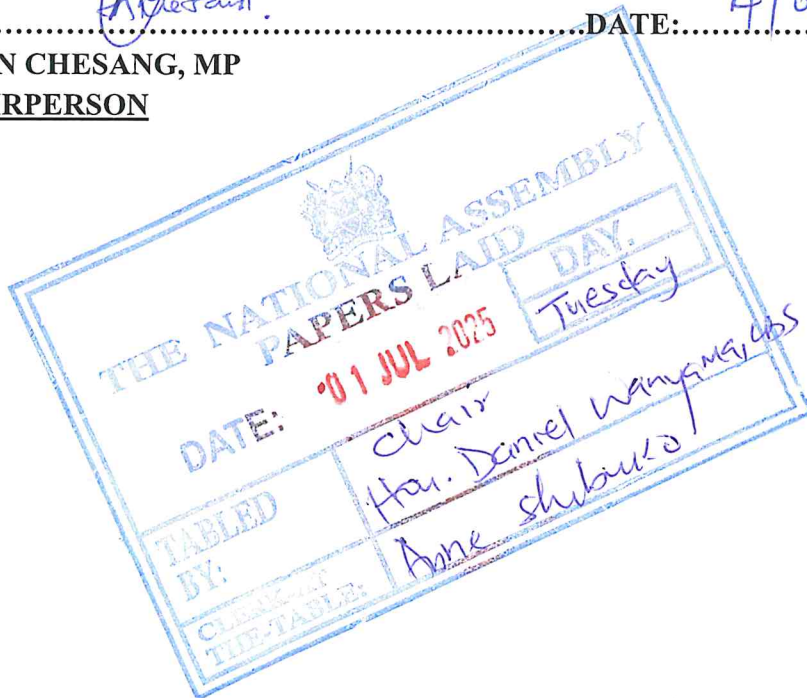 ……………………………………DATE:…… 4/0
N CHESANG, MP
RPERSON
THE NATIONAL ASSEMBLY
PAPERS LAID
DATE: 01 JUL 2025
DAY.
Tuesday
TABLED BY:
Chair
Hon. Daniel Wanyama, CBS
CLERK-AT THE-TABLE:
Anne Shibuko